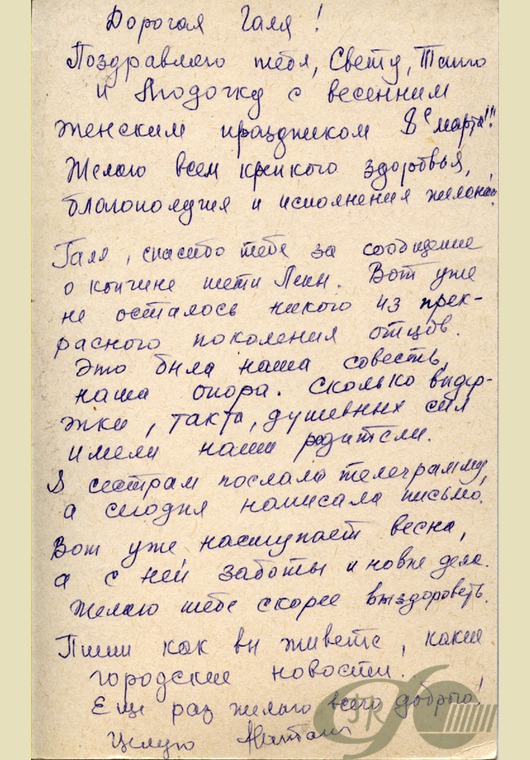 Дорогая Галя!
Поздравляю тебя, Свету, Таню
и Людочку с весенним
женским праздником 8е марта!!!
Желаю всем крепкого здоровья,
благополучия и исполнения желаний
Галя, спасибо тебе за сообщение
о кончине тети Лены. Вот уже
не осталось никого из прек-
расного поколения отцов.
Это была наша совесть,
наша опора. Сколько выдер-
жки, такта, душевных сил
имели наши родители.
Я сестрам послала телеграмму,
а сегодня написала письмо.
Вот уже наступает весна,
а с ней заботы и новые дела.
Желаю тебе скорее выздороветь.
Пиши как вы живете, какие
городские новости.
Еще раз желаю всего доброго!
Целую
JR